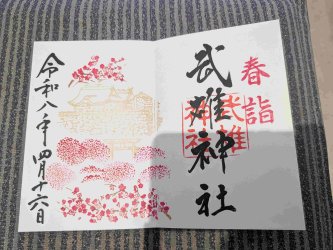 春詣
武雄神社
武雄
神社
令和八年四月十六日